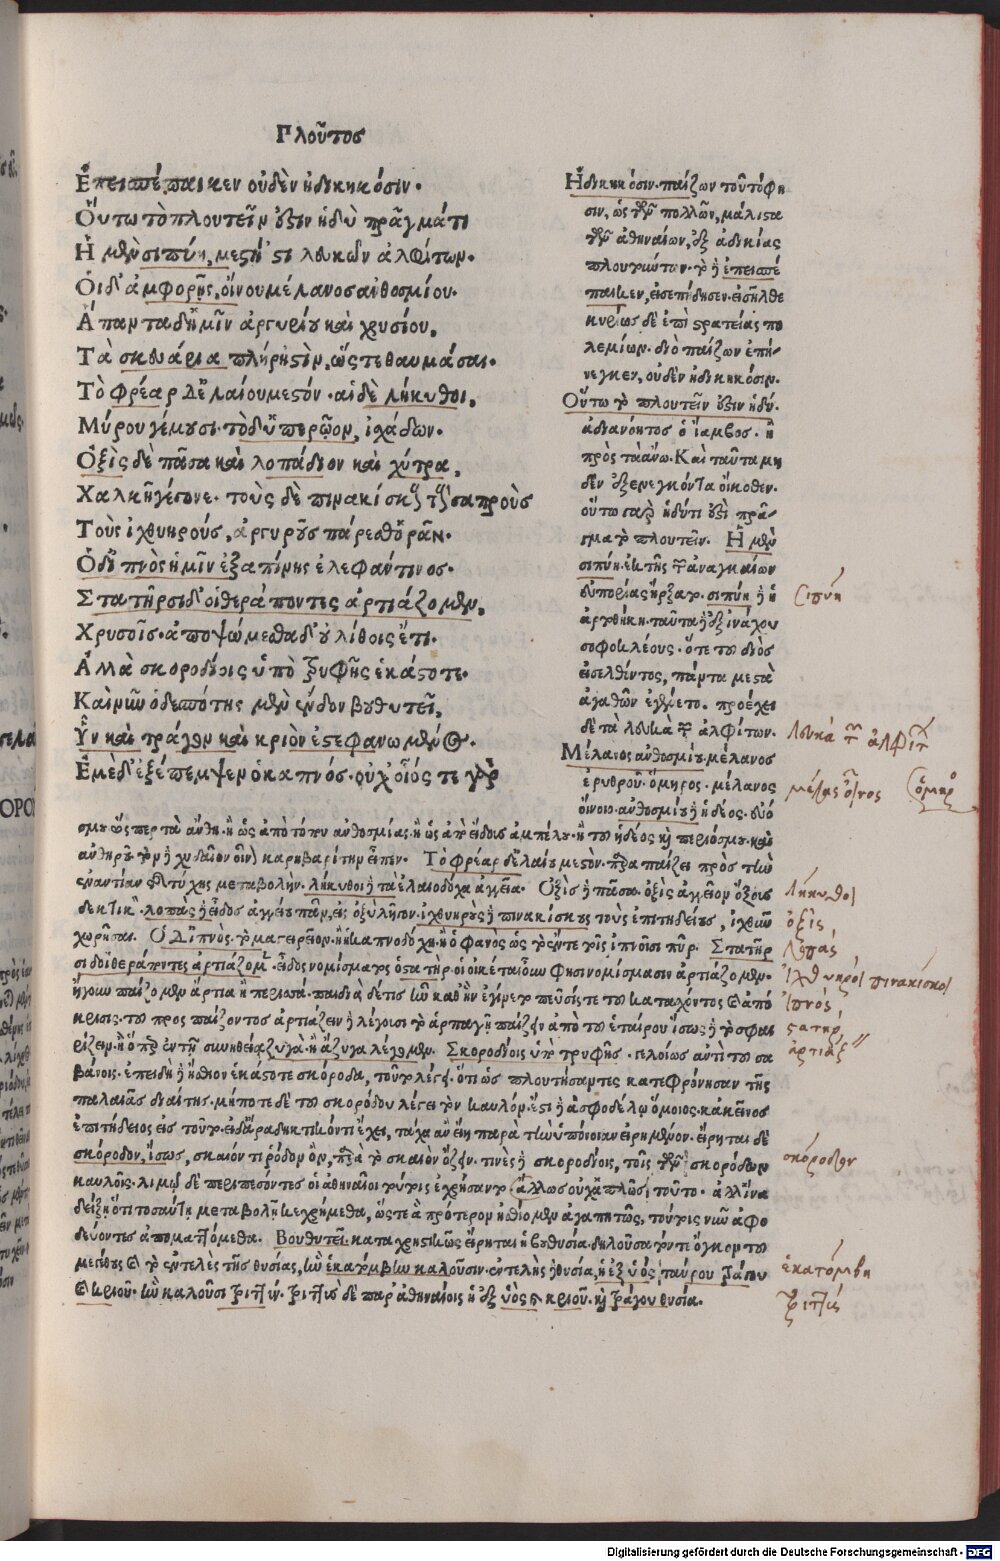 Πλοῦτος
Ἐπεισπέπαικεν οὐδὲν ἠδικηκόσιν.
Οὕτω τὸ πλουτεῖν ἐστιν ἡδὺ πρᾶγμά τι
Ἡ μὲν σιπύη, μεστή 'στι λευκῶν ἀλφίτων.
Οἱ δ' ἀμφορῆς, οἴνου μέλανος ἀνθοσμίου.
Ἅπαντα δ' ἡμῖν ἀργυρίου καὶ χρυσίου,
Τὰ σκευάρια πλήρη 'στὶν, ὥστε θαυμάσαι.
Τὸ φρέαρ δ' ἐλαίου μεστόν. αἱ δὲ λήκυθοι,
Μύρου γέμουσι. τὸ δ' ὑπερῷον, ἰχάδων.
Ὀξὶς δὲ πᾶσα καὶ λοπάδιον καὶ χύτρα,
Χαλκῆ γέγονε. τοὺς δὲ πινακίσκους τοὺς σαπροὺς
Τοὺς ἰχθυηροὺς, ἀργυροῦς πάρεσθ' ὁρᾶν.
Ὁ δ' ἰπνὸς ἡμῖν ἐξαπίνης ἐλεφάντινος.
Στατῆρσι δ' οἱ θεράποντες ἀρτιάζομεν,
Χρυσοῖς. ἀποψώμεσθα δ' οὐ λίθοις ἔτι.
Ἀλλὰ σκοροδίοις ὑπὸ τρυφῆς ἑκάστοτε.
Καὶ νῦν ὁ δεσπότης μὲν ἔνδον βουθυτεῖ,
Ὗν καὶ τράγον καὶ κριὸν ἐστεφανωμένος.
Ἐμὲ δ' ἐξέπεμψεν ὁ καπνός. οὐχ οἷός τε γὰρ
Ἠδικηκόσιν. παίζων τοῦτό φη
σιν, ὡς τῶν πολλῶν, μάλιστα
τῶν ἀθηναίων, ἐξ ἀδικίας
πλουτούντων. τὸ δὲ ἐπεισπέ
παικεν, ἐπεισεπήδησεν. εἰσῆλθε
κυρίως δὲ ἐπὶ στρατείας πο
λεμίων. διὸ παίζων ἐπή-
νεγκεν, οὐδὲν ἠδικηκόσιν.
Οὕτω τὸ πλουτεῖν ἐστιν ἡδύ.
ἀδιανόητος ὁ ἴαμβος. ἢ
πρὸς τὰ ἄνω. Καὶ ταῦτα μη
δὲν ἐξενεγκόντα οἴκοθεν.
οὕτω γὰρ ἡδύ τί ἐστι πρᾶ-
γμα τὸ πλουτεῖν. Ἡ μὲν
σιπύη. ἐκ τῆς τῶν ἀναγκαίων
εὐπορίας ἤρξατο. σιπύη δὲ ἡ
ἀρτοθήκη. ταῦτα δὲ ἐξ ἰνάχου
σοφοκλέους. ὅτε τοῦ διὸς
εἰσελθόντος, πάντα μεστὰ
ἀγαθῶν ἐγένετο. προέχει
δὲ τὰ λευκὰ τῶν ἀλφίτων.
Μέλανος ἀνθοσμίου. μέλανος
ἐρυθροῦ. ὅμηρος. μέλανος
οἴνοιο. ἀνθοσμίου δὲ ἡδέος. εὐό
σμου ὥσπερ τὰ ἄνθη. ἢ ὡς ἀπὸ τόπου ἀνθοσμίας. ἢ ὡς ἀπὸ εἴδους ἀμπέλου. ἢ τοῦ ἡδέος καὶ εὐόσμου. καὶ
Τὸ φρέαρ δ' ἐλαίου μεστόν. παίζει πρὸς τὴν
ἐναντίαν τῆς τύχης μεταβολήν. λήκυθοι δὲ τὰ ἐλαιοδόχα ἀγγεῖα. Ὀξὶς δὲ πᾶσα. ὀξὶς ἀγγεῖον ὄξους
δεκτικόν. λοπὰς δὲ εἶδος ἀγγείου ἰχθυηροὺς δὲ πινακίσκους τοὺς ἐπιτηδείους, ἰχθῦν
χωρῆσαι. Ὁ δ' ἰπνὸς. τὸ μαγειρεῖον. ἢ ἡ καπνοδόχη. ἢ ὁ φανὸς Στατῆρ
σι δ' οἱ θεράποντες ἀρτιάζομεν. εἶδος νομίσματος ὁ στατήρ. οἱ οἰκέται οὖν φησι νομίσμασιν ἀρτιάζομεν.
ἤγουν παίζομεν ἄρτια ἢ περισσά. παιδιὰ δέ τις
κρισις. τοῦ προσπαίζοντος
ρίζειν. ζυγὰ ἢ ἄζυγα λέγομεν. Σκοροδίοις ὑπὸ τρυφῆς. γελοίως ἀντὶ τοῦ σα
βάνοις. ἐπειδὴ δὲ ἤσθιον ἑκάστοτε σκόροδα, τοῦτο λέγει. ὅτι ὡς πλουτήσαντες κατεφρόνησαν τῆς
παλαιᾶς διαίτης. μήποτε δὲ τοῦ σκορόδου λέγει τὸν καυλόν. ἔστι δὲ ἀσφοδέλῳ ὅμοιος. κἀκεῖνος
ἐπιτήδειος εἰς τοῦτο. τάχα ἂν εἴη παρὰ τὴν ὑπόνοιαν εἰρημένον. εἴρηται δὲ
σκόροδον, ἴσως, σκαιόν τι ῥόδον ὂν, παρὰ τὸ σκαιὸν ὄζειν. τινὲς δὲ σκοροδίοις, τοῖς τῶν σκορόδων
καυλοῖς. λιμῷ δὲ περιπεσόντες οἱ ἀθηναῖοι τούτοις ἐχρήσαντο. ἄλλως οὐχ ἁπλῶς τοῦτο. ἀλλ' ἵνα
δείξῃ ὅτι τοσαύτῃ μεταβολῇ κεχρήμεθα, ὥστε ἃ πρότερον ἠσθίομεν ἀγαπητῶς, τούτοις νῦν ἀφο
δεύοντες ἀποματτόμεθα. Βουθυτεῖ. καταχρηστικῶς εἴρηται ἡ βουθυσία. δηλοῦσα τὸν τι ὄγκον τοῦ
μεγέθους καὶ τὸ ἐντελὲς τῆς θυσίας, ἣν ἑκατόμβην καλοῦσιν. ἐντελὴς δὲ θυσία, ἡ ἐξ ὑὸς, ταύρου τράγου
καὶ κριοῦ. ἣν καλοῦσι τριττύν. τριττὺς δὲ παρ' ἀθηναίοις ἡ ἐξ ὑὸς, κριοῦ. καὶ τράγου θυσία.
Σιπύη
λευκὰ τῶν ἀλφίτων
μέλας οἶνος ὅμηρος
λήκυθοι
ὀξὶς
λοπάς
ἰχθυηροὶ πινακίσκοι
ἰπνὸς
στατήρ
ἀρτιάζειν
σκόροδον
ἑκατόμβη
τριττύς
Digitalisierung gefördert durch die Deutsche Forschungsgemeinschaft - DFG